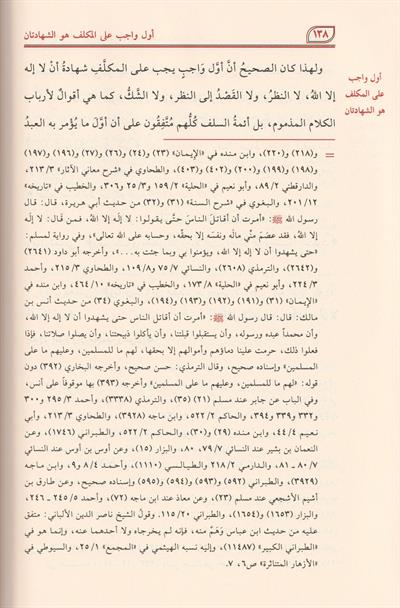 ١٣٨
أول واجب على المكلف هو الشهادتان
أول واجب
على المكلف
هو الشهادتان
ولهذا كان الصحيحُ أنَّ أوَّل وَاجبٍ يجب على المكلَّفِ شهادةُ أنْ لا إله
إلا اللهُ، لا النظرُ، ولا القَصْدُ إلى النظر، ولا الشَّكُّ، كما هي أقوالٌ لأرباب
الكلام المذموم، بل أئمةُ السلف كُلُّهم مُتَّفِقُون على أن أوَّلَ ما يُؤمر به العبدُ
= و(٢١٨) و(٢٢٠)، وابن منده في «الإيمان» (٢٣) و(٢٤) و(٢٦) و(٢٧) و(١٩٦) و(١٩٧)
و(١٩٨) و(١٩٩) و(٢٠٠) و(٤٠٢) و(٤٠٣)، والطحاوي في «شرح معاني الآثار» ٢١٣/٣،
والدارقطني ٨٩/٢، وأبو نعيم في «الحلية» ١٥٩/٢ و٢٥/٣ و٣٠٦، والخطيب في «تاريخه»
٢٠١/١٢، والبغوي في «شرح السنة» (٣١) و(٣٢) من حديث أبي هريرة، قال: قال
رسول الله ﷺ: «أمرت أن أقاتلَ الناسَ حتَّى يقولوا: لا إله إلا الله، فمن قال: لا إله
إلا الله، فقد عصَمَ منِّي مالَه ونفسَه إلا بحقِّه، وحسابه على الله تعالى»، وفي رواية لمسلم:
«حتى يشهدوا أن لا إله إلا الله، ويؤمنوا بي وبما جئت به...». وأخرجه أبو داود (٢٦٤١)
و(٢٦٤٢)، والترمذي (٢٦٠٨)، والنسائي ٧٥/٧ و١٠٩/٨، والطحاوي ٢١٥/٣، وأحمد
٢٢٤/٣، وأبو نعيم في «الحلية» ١٧٣/٨، والخطيب في «تاريخه» ٤٦٤/١٠، وابن منده في
«الإيمان» (٣١) و(١٩١) و(١٩٢) و(١٩٣) و(١٩٤)، والبغوي (٣٤) من حديث أنس بن
مالك: قال: قال رسول الله ﷺ: «أمرت أن أقاتل الناس حتى يشهدوا أن لا إله إلا الله،
وأن محمداً عبده ورسوله، وأن يستقبلوا قبلتنا، وأن يأكلوا ذبيحتنا، وأن يصلوا صلاتنا، فإذا
فعلوا ذلك، حرمت علينا دماؤهم وأموالهم إلا بحقها، لهم ما للمسلمين، وعليهم ما على
المسلمين» وإسناده صحيح، وقال الترمذي: حسن صحيح، وأخرجه البخاري (٣٩٢) دون
قوله: «لهم ما للمسلمين، وعليهم ما على المسلمين» وأخرجه (٣٩٣) بها موقوفاً على أنس،
وفي الباب عن جابر عند مسلم (٢١) (٣٥)، والترمذي (٣٣٣٨)، وأحمد ٢٩٥/٣ و٣٠٠
و٣٣٢ و٣٣٩ و٣٩٤، والحاكم ٥٢٢/٢، وابن ماجه (٣٩٢٨)، والطحاوي ٢١٣/٣، وأبي
نعيم ٤٤/٤، وابن منده (٢٩) و(٣٠)، والحاكم ٥٢٢/٢، والطبراني (١٧٤٦)، وعن
النعمان بن بشير عند النسائي ٧٩/٧، ٨٠، والبزار (١٥)، وعن أوس بن أوس عند النسائي
٨٠/٧ ـ ٨١، والدارمي ٢١٨/٢ والطيالسي (١١١٠)، وأحمد ٨/٤ و٩، وابن ماجه
(٣٩٢٩)، والطبراني (٥٩٢) و(٥٩٣) و(٥٩٤) و(٥٩٥) وإسناده صحيح، وعن طارق بن
أشيم الأشجعي عند مسلم (٢٣)، وعن معاذ عند ابن ماجه (٧٢)، وأحمد ٢٤٥/٥ ـ ٢٤٦،
والبزار (١٦٥٣) و(١٦٥٤)، والطبراني ١١٥/٢٠. وقولُ الشيخ ناصر الدين الألباني: متفق
عليه من حديث ابن عباس وَهَمٌ منه، فإنه لم يخرجاه ولا أحدهما عنه، وإنما هو في
«الطبراني الكبير» (١١٤٨٧)، وإليه نسبه الهيثمي في «المجمع» ٢٥/١، والسيوطي في
«الأزهار المتناثرة» ص٦، ٧.